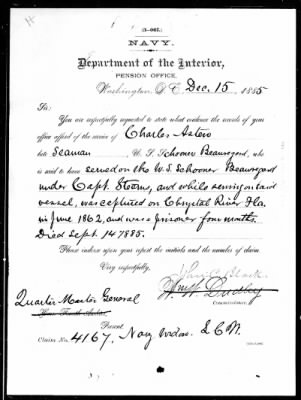 (3-067.)
NAVY.
Department of the Interior,
PENSION OFFICE,
Washington, D.C. Dec. 15, 1885
Sir:
You are respectfully requested to state what evidence the records of your
office afford of the service of Charles Astero
late Seaman U.S. Schooner Beauregard, who
is said to have served on the U.S. Schooner Beauregard
under Capt. Stearns, and while serving on said
vessel, was captured on Chrystal River Fla.
in June 1862, and was prisoner four months.
Died Sept. 14 7885.
Please endorse upon your report the initials and the number of claim.
Very respectfully,
Black
Wm W. Dudley
Commissioner.
Quarter Master General
Present
Claim No. 4167, Navy